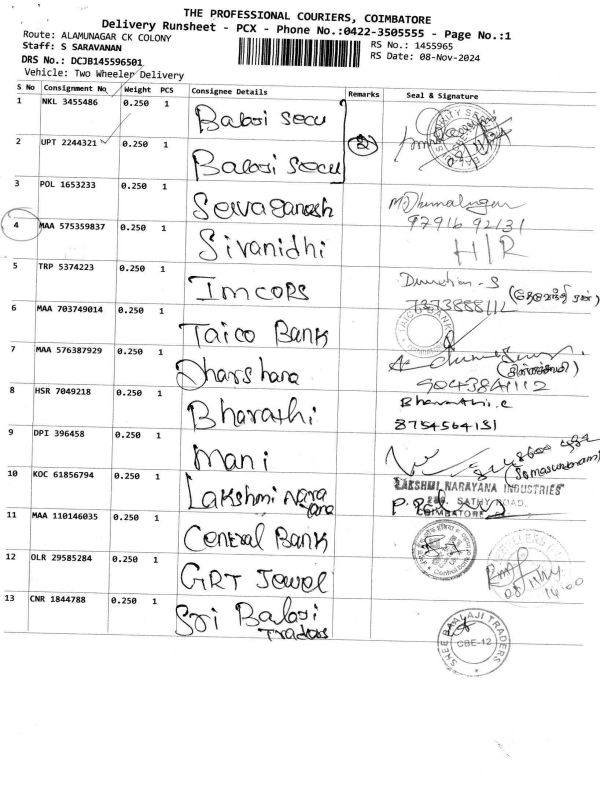 THE PROFESSIONAL COURIERS, COIMBATORE
Delivery Runsheet - PCX - Phone No.:0422-3505555 - Page No.:1
Route: ALAMUNAGAR CK COLONY
RS No.: 1455965
Staff: S SARAVANAN
RS Date: 08-Nov-2024
DRS No.: DCJB145596501
Vehicle: Two Wheeler Delivery
S No Consignment No Weight PCS Consignee Details Remarks Seal & Signature
1 NKL 3455486 0.250 1 Balaji Secu
2 UPT 2244321 0.250 1 Balaji Secu
3 POL 1653233 0.250 1 Selvaganesh
97916 92131
4 MAA 575359837 0.250 1 Sivanidhi H/R
5 TRP 5374223 0.250 1 IMCOPS
7373888112
6 MAA 703749014 0.250 1 Taico Bank
7 MAA 576387929 0.250 1 Dharshana
9043841112
8 HSR 7049218 0.250 1 Bharathi Bharathi.c
8754564131
9 DPI 396458 0.250 1 Mani
(Somasundaram)
10 KOC 61856794 0.250 1 Lakshmi Narayana
LAKSHMI NARAYANA INDUSTRIES
SATHY ROAD,
COIMBATORE
11 MAA 110146035 0.250 1 Central Bank
12 OLR 29585284 0.250 1 GRT Jewel
13 CNR 1844788 0.250 1 Sri Balaji
Traders
SHREE BAALAJI TRADERS
CBE-12